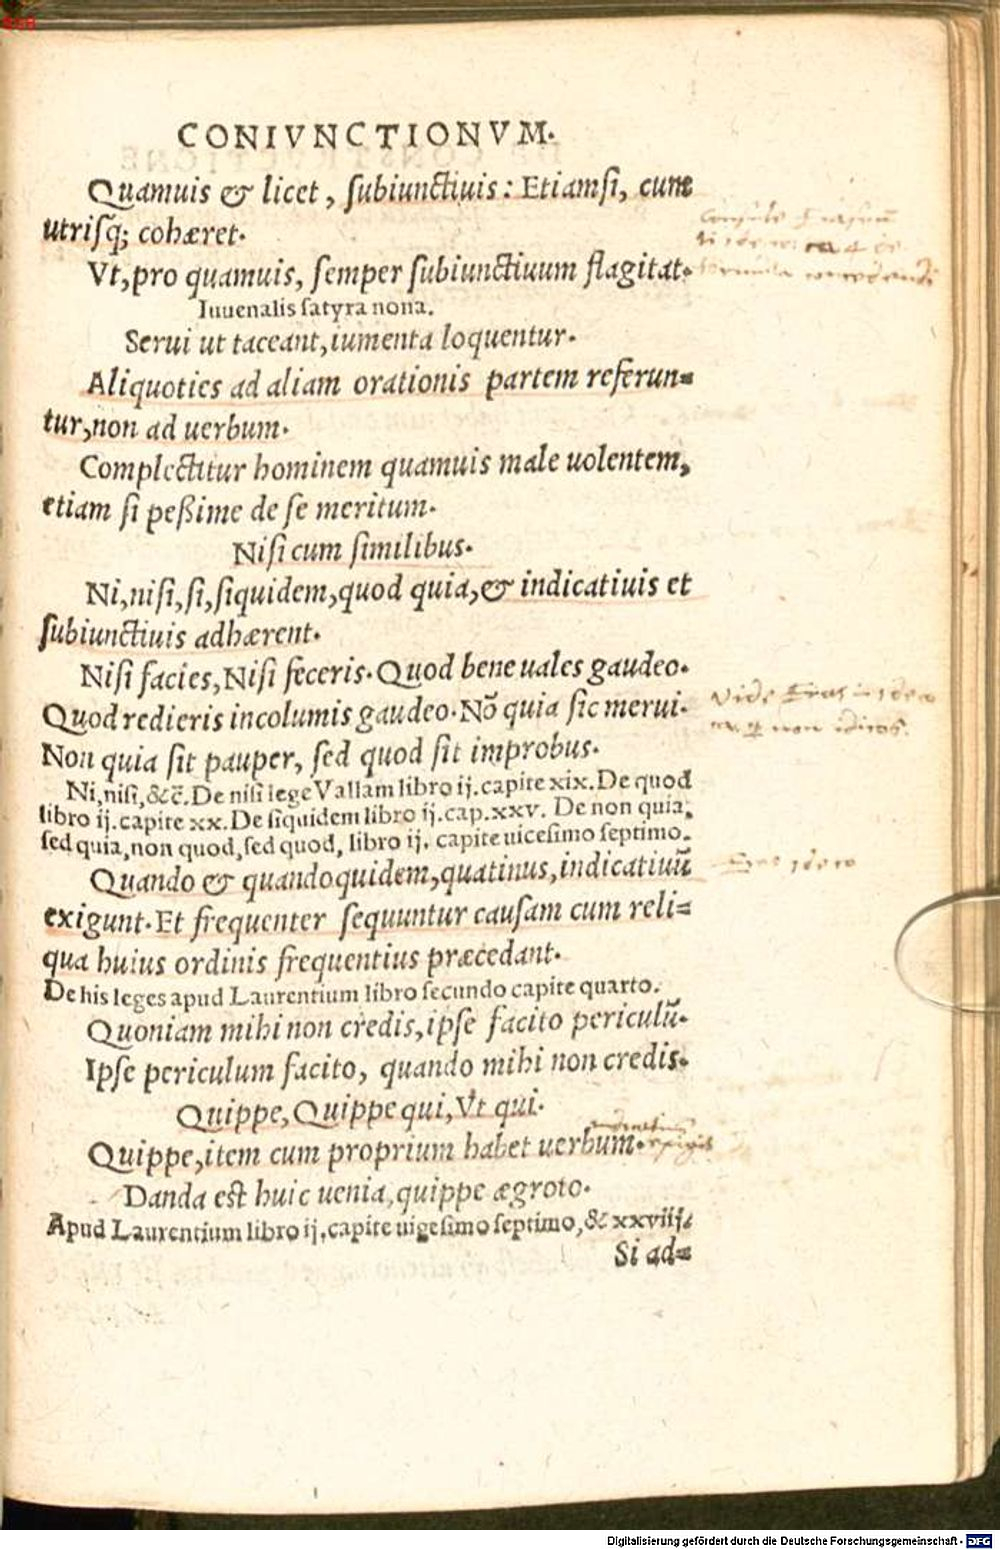 CONIVNCTIONVM.
Quamuis & licet, subiunctiuis: Etiamsi, cum
utrisq; cohæret.
Vt, pro quamuis, semper subiunctiuum flagitat.
Iuuenalis satyra nona.
Serui ut taceant, iumenta loquentur.
Aliquoties ad aliam orationis partem referun=
tur, non ad uerbum.
Complectitur hominem quamuis male uolentem,
etiam si peßime de se meritum.
Nisi cum similibus.
Ni, nisi, si, siquidem, quod quia, & indicatiuis et
subiunctiuis adhærent.
Nisi facies, Nisi feceris. Quod bene uales gaudeo.
Quod redieris incolumis gaudeo. Nõ quia sic merui.
Non quia sit pauper, sed quod sit improbus.
Ni, nisi, &c̄. De nisi lege Vallam libro ij. capite xix. De quod
libro ij. capite xx. De siquidem libro ij. cap. xxv. De non quia,
sed quia, non quod, sed quod, libro ij. capite uicesimo septimo.
Quando & quandoquidem, quatinus, indicatiuũ
exigunt. Et frequenter sequuntur causam cum reli=
qua huius ordinis frequentius præcedant.
De his leges apud Laurentium libro secundo capite quarto.
Quoniam mihi non credis, ipse facito periculũ.
Ipse periculum facito, quando mihi non credis.
Quippe, Quippe qui, Vt qui.
Quippe, item cum proprium habet uerbum.
Danda est huic uenia, quippe ægroto.
Apud Laurentium libro ij. capite uigesimo septimo, & xxviij.
Si ad=
Vide Eras
non
Digitalisierung gefördert durch die Deutsche Forschungsgemeinschaft - DFG